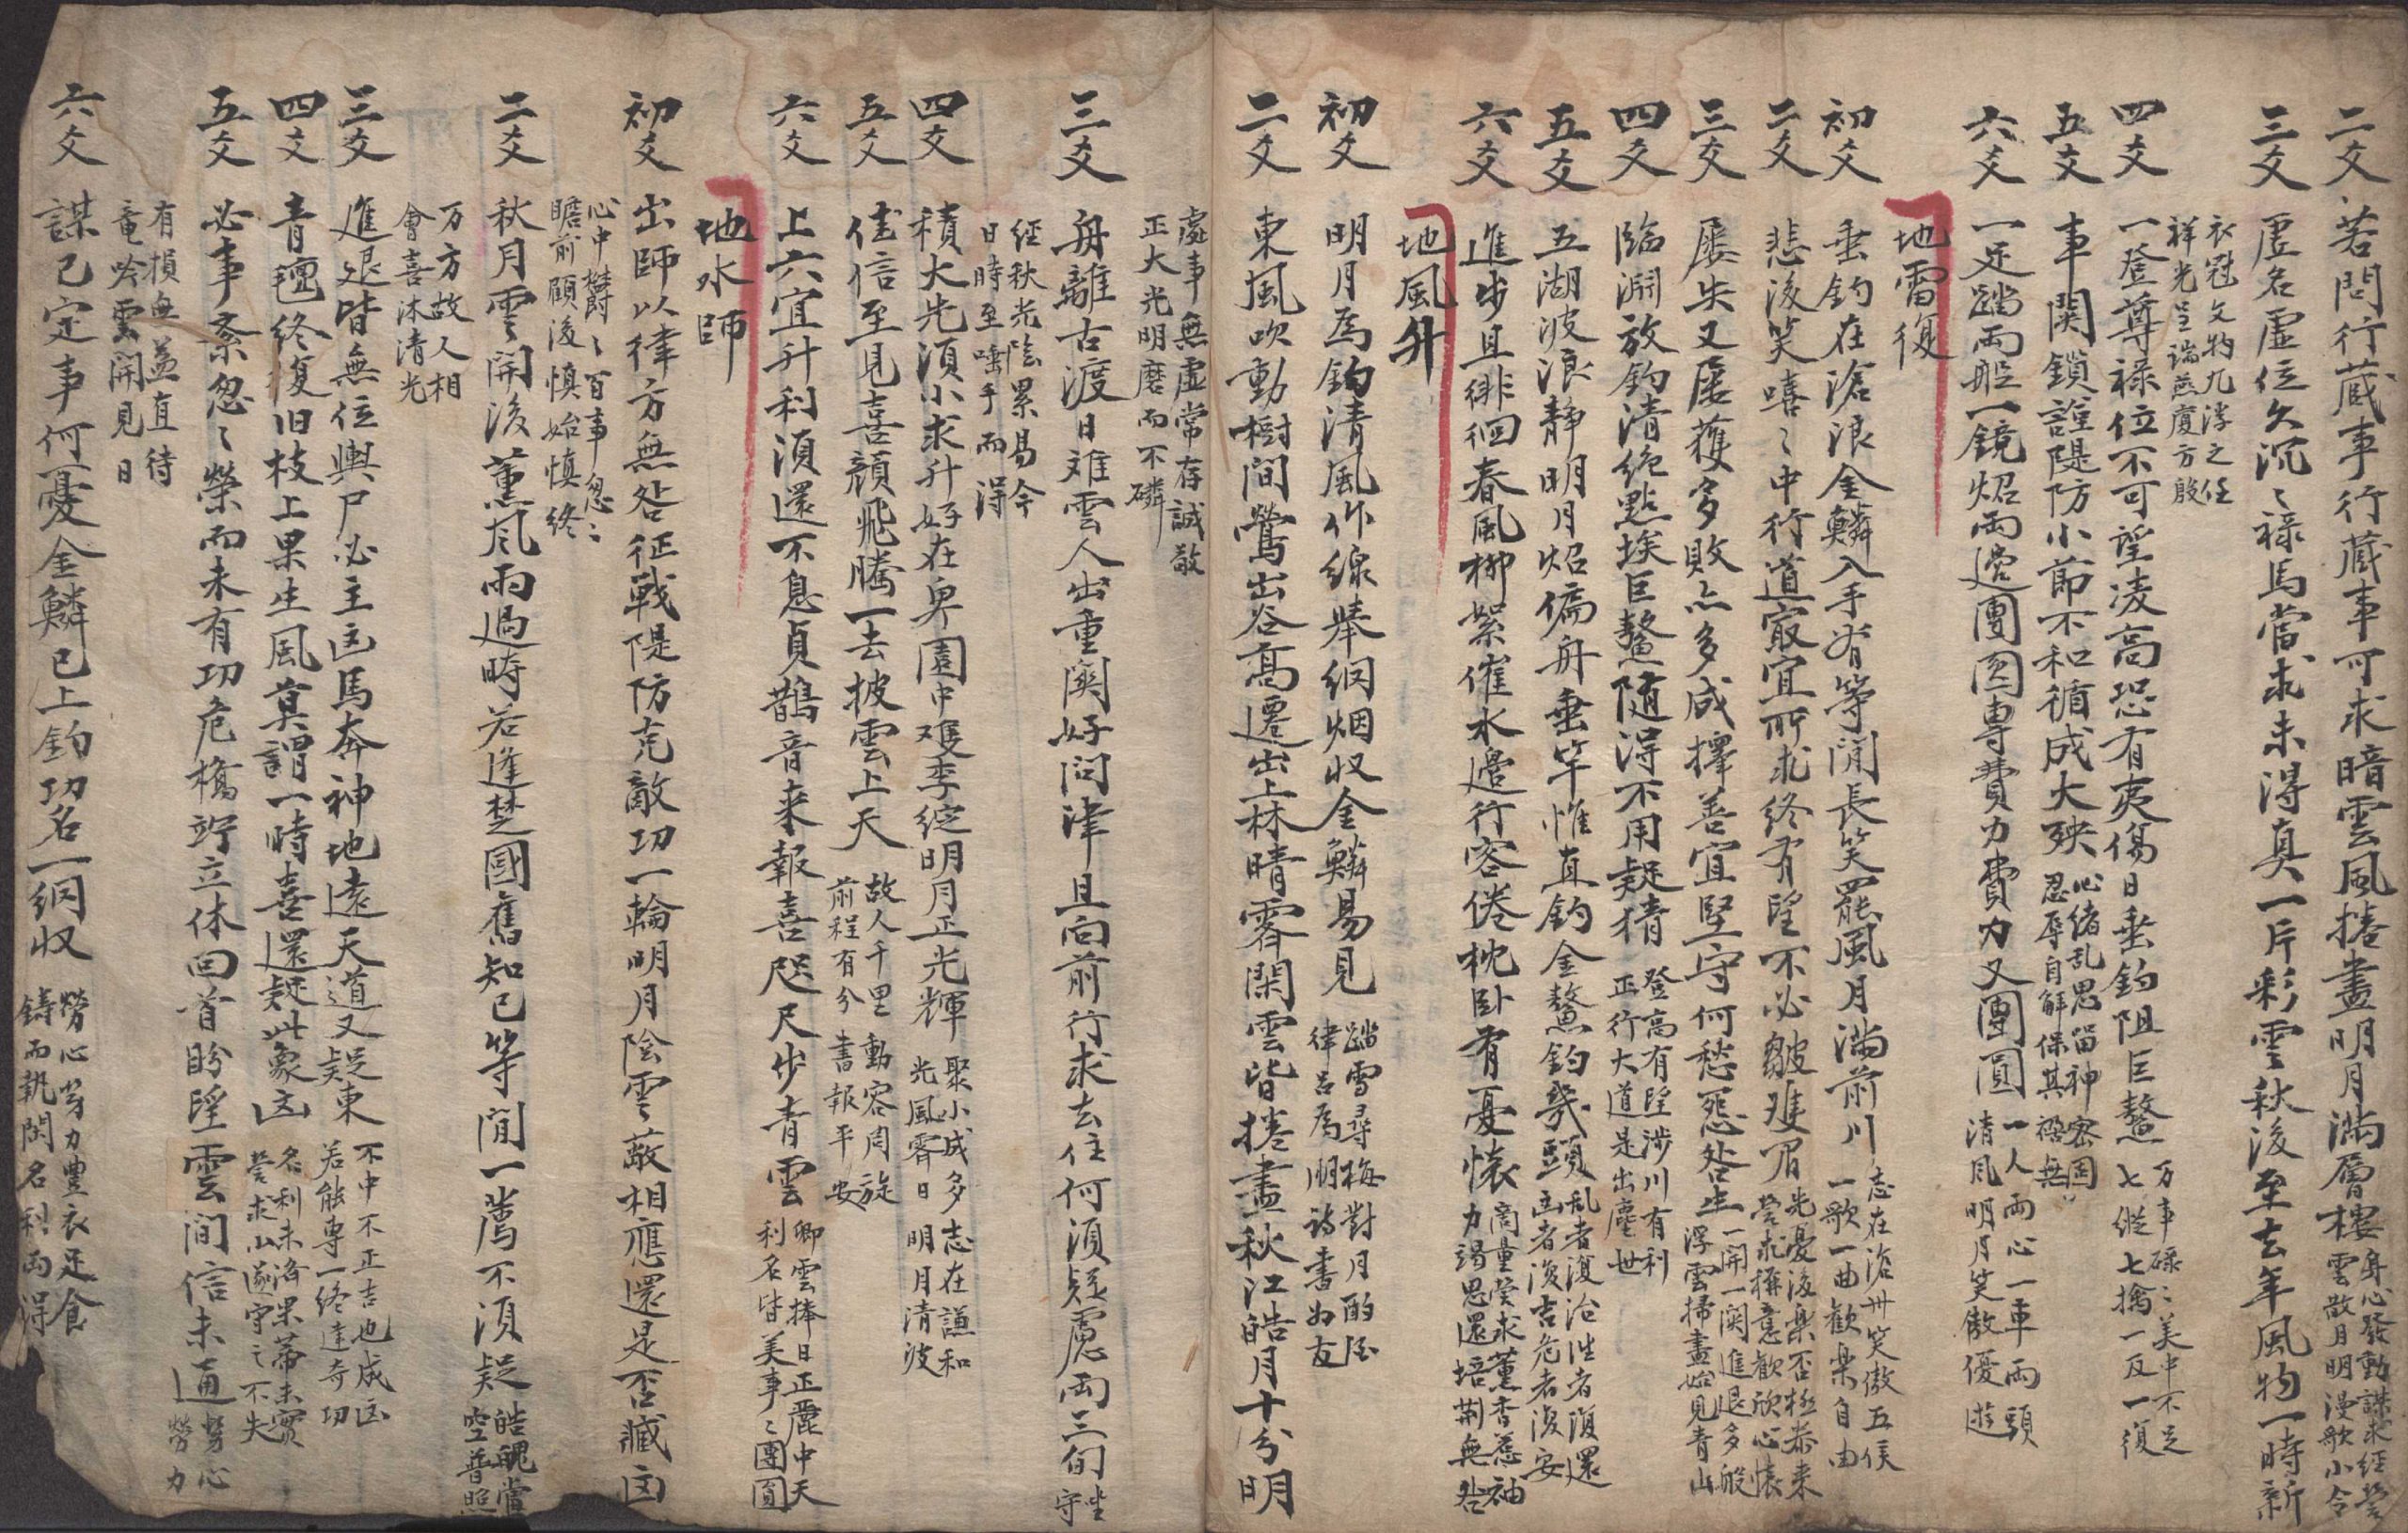 二爻 若問行蔵事行蔵事可求暗雲風捲盡明月滿層樓 身心發動謀求經營 雲散月明漫歌小令
三爻 虛名虛位久沉〻祿馬當求未得真一片彩雲秋後至去年風物一時新
衣冠文物九淂之任 祥光呈瑞燕廈方殷
四爻 一登尊祿位不可望凌高恐有夷傷日垂釣阻巨鰲 万事碌〻美中不足 七縱七擒一反一復
五爻 事関鎖諠隄防小節不和循成大殃 心緒乱思留神密囿 忍辱自解保其無
六爻 一足踏兩船一鏡炤兩邊團圓專費力費力又團圓 一人兩心一車兩頭 清風明月笑傲優遊
地雷復
初爻 垂釣在滄浪金鱗入手有等閒長笑罷風月滿前川 志在滄州笑傲五侯 一歌一曲歡樂自由
二爻 悲後笑嘻〻中行道寂宜所求終有望不必皺雙眉 先憂後樂否極泰来 營求稱意歡欣心懐
三爻 屡失又屡獲多敗亦多成擇善宜堅守何愁怨咎生 一開一関進退多般 浮雲掃盡始見青山
四爻 臨淵放釣清絶點埃巨鰲隨得不用疑猜 登高有望涉川有利 正行大道是出塵世
五爻 五湖波浪靜明月炤偏舟垂竿惟直釣金鰲釣幾頭 乱者復治往者復還 凶者復吉危者復安
六爻 進步且徘徊春風柳絮催水邊行客倦枕卧有憂懐 商量營求薰香惹袖 力竭思還培荆無咎
地風升
初爻 明月爲鈎清風作線舉網烟収金鱗易見 踏雪尋梅對月酌卮 律呂爲朋詩書为友
二爻 東風吹動樹間鶯出谷高遷出上林晴霽閑雲皆捲盡秋江皓月十分明
處事無虛常存誠敬 正大光明磨而不磷
三爻 舟離古渡日難雲人出重関好问津且向前行求去住何須疑慮兩三旬 守坐
經秋光陰累易今 日時至唾手而得
四爻 積大先須小求升好在卑園中雙李綻明月正光輝 聚小成多志在謙和 光風霽日明月清波
五爻 佳信至見喜顏飛騰一去披雲上天 故人千里動容周旋 前程有分書報平安
六爻 上六宜升利須還不息貞鵲音来報喜咫尺步青雲 卿雲捧日正麗中天 利名皆美事〻團圓
地水師
初爻 出師以律方無咎征戰隄防克敵功一輪明月陰雲蔽相應還是否臧凶
心中欝〻百事忽〻 瞻前顧後慎始慎终
二爻 秋月雲開後薰风雨過時若逢楚國舊知己等閒一薦不須疑 皓魄當空普照
万方故人相 會喜沐清光
三爻 進退皆無位輿尸必主凶馬奔神地遠天道又疑東 不中不正吉也成凶 若能專一終達奇功
四爻 青氊終復旧枝上果生風莫謂一時喜還疑此象凶 名利未洽果蒂未實 營求小遂守之不失
五爻 必事紊忽〻榮而未有功危橋竚立休回首盼望雲間信未通 勞心勞力
有損無益直待 竜吟雲開見日
六爻 謀已定事何憂金鱗已上釣功名一網収 勞心労力豊衣足食 鋳而執関名利两得